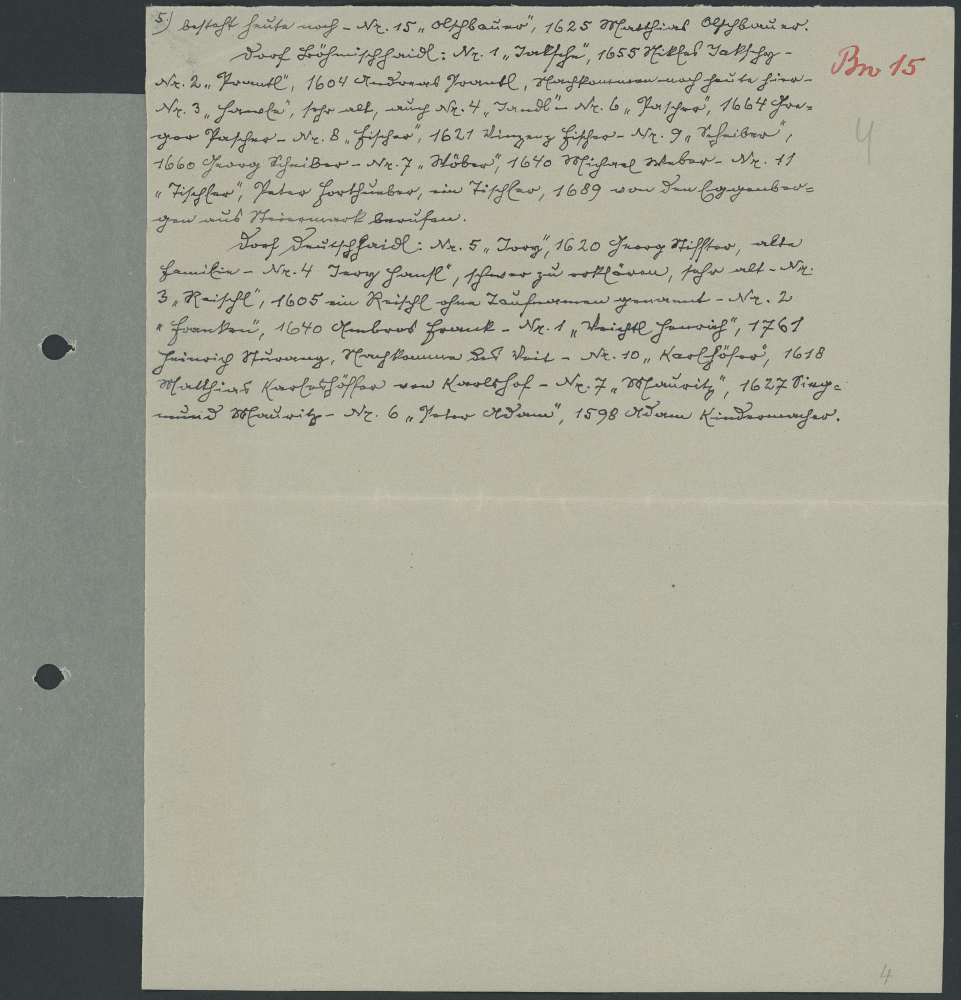 5.) besteht heute noch – Nr. 15 „Olschbauer", 1625 Matthias Olschbauer.
Dorf Böhmischhaidl: Nr. 1 „Jaksche", 1655 Nikles Jakschy –
Bn 15
Nr. 2 „Prantl", 1604 Andreas Prantl, Nachkommen noch heute hier –
Nr. 3 „Hawle", sehr alt, auch Nr. 4 „Jandl" – Nr. 6 „Pascher", 1664 Gre=
gor Pascher – Nr. 8 „Fischer", 1621 Vinzenz Fischer – Nr. 9 „Scheiber",
4
1660 Georg Scheiber – Nr. 7 „Wöber", 1640 Michael Weber – Nr. 11
„Tischler", Peter Forthueber, ein Tischler, 1689 von den Eggenber=
gen aus Steiermark berufen.
Dorf Deutschhaidl: Nr. 5 „Jorg", 1620 Georg Stiffter, alte
Familie – Nr. 4 Jerg Hansl", schwer zu erklären, sehr alt – Nr.
3 „Reischl", 1605 ein Reischl ohne Taufnamen genannt – Nr. 2
„Franken", 1640 Ambros Frank – Nr. 1 „Veichtl Henrich", 1761
Heinrich Nachkomme des Veit – Nr. 10 „Karlhöfer", 1618
Matthias Karleshöffer von Karlshof – Nr. 7 „Mauritz", 1627 Sieg=
mund Mauritz – Nr. 6 „Peter Adam", 1598 Adam Kindermacher.
4